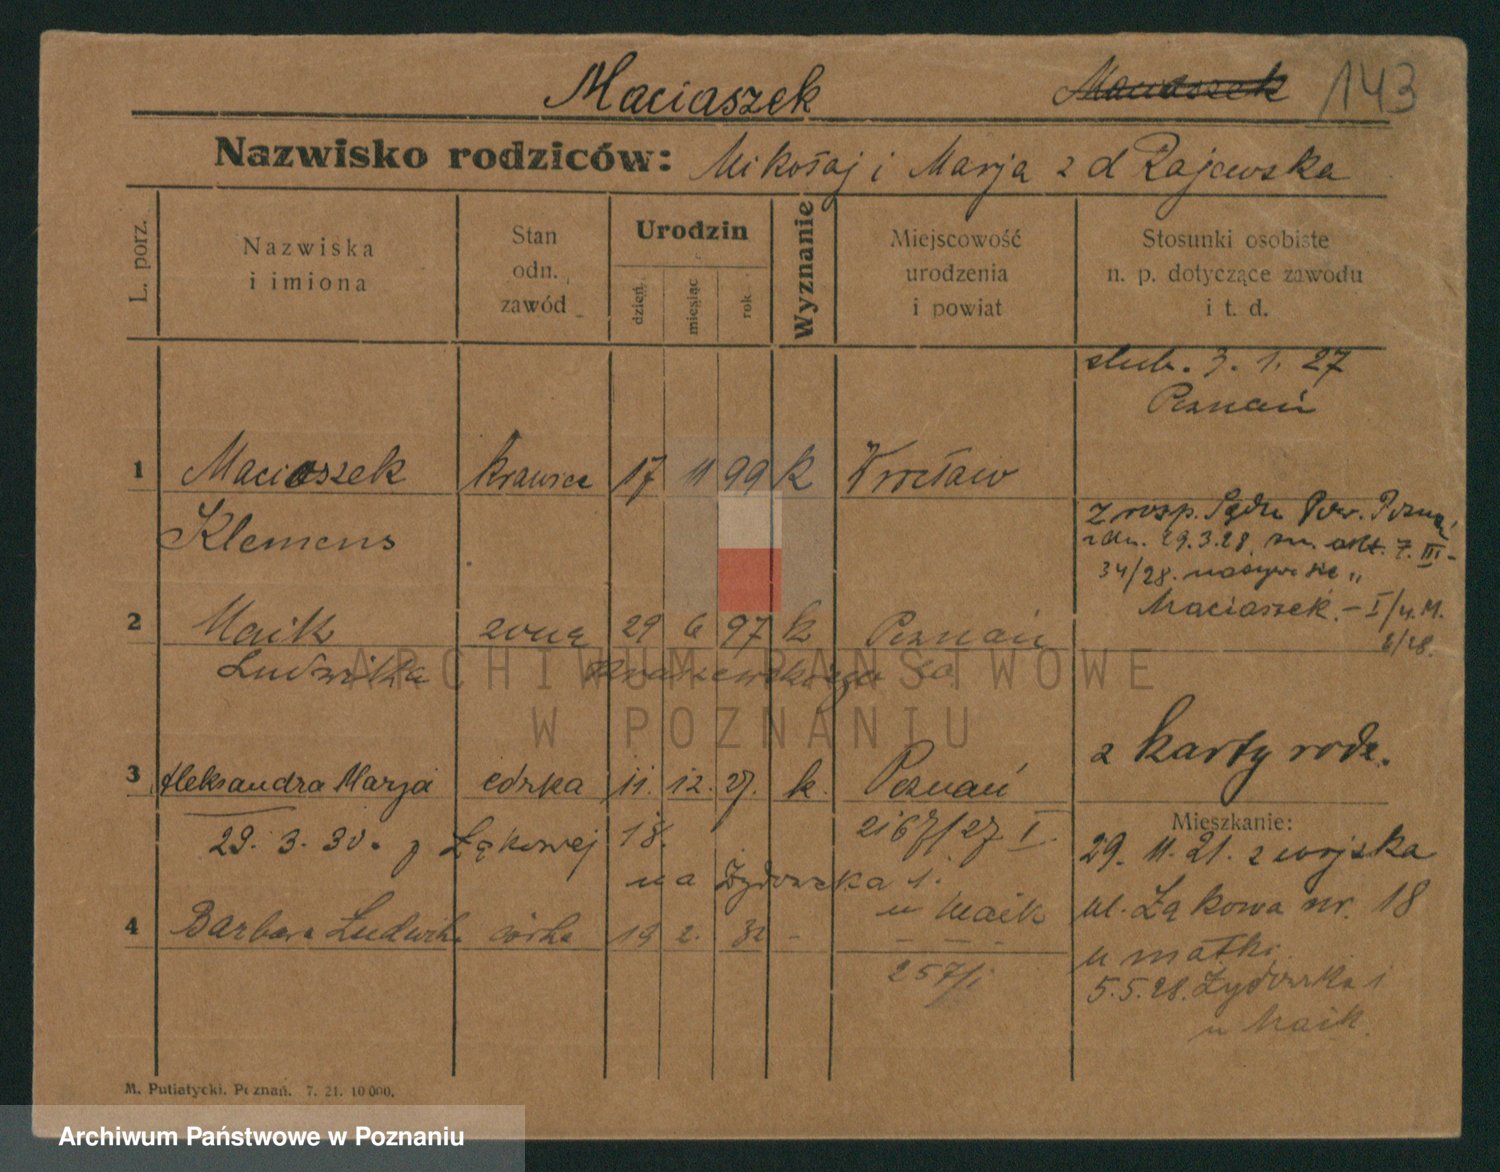 Maciaszek 143
Nazwisko rodziców: Mikołaj i Marja z d Rajewska
L. porz.
Nazwiska
i imiona
Stan
odn.
zawód
Urodzin
dzień
miesiąc
rok
Wyznanie
Miejscowość
urodzenia
i powiat
Stosunki osobiste
n. p. dotyczące zawodu
i t. d.
ślub. 3. 1. 27
Poznań
1 Maciaszek krawiec 17 11 99 k Wrocław
Klemens
z rozp. Sądu Pow. Pozna
z dn. 29.3.28 nr. akt. 7. III-
34/28. nazywa się „
Maciaszek. – I/4.M.
6/28.
2 Maik żona 29 6 97 k Poznań
Ludwika
z karty rodz.
3 Aleksandra Marja córka 11. 12. 27. k. Poznań
2167/27 I.
29. 3. 30. z Łąkowej 18.
na Żydowska 1.
u Maik
Mieszkanie:
29. 11. 21. z wojska
ul. Łąkowa nr. 18
u matki
5.5.28. Żydowska 1
u Maik.
4 Barbara Ludwika córka 19 2. 32 -
257/1
M. Putiatycki. Poznań. 7. 21. 10 000.
ARCHIWUM PAŃSTWOWE
W POZNANIU
Archiwum Państwowe w Poznaniu